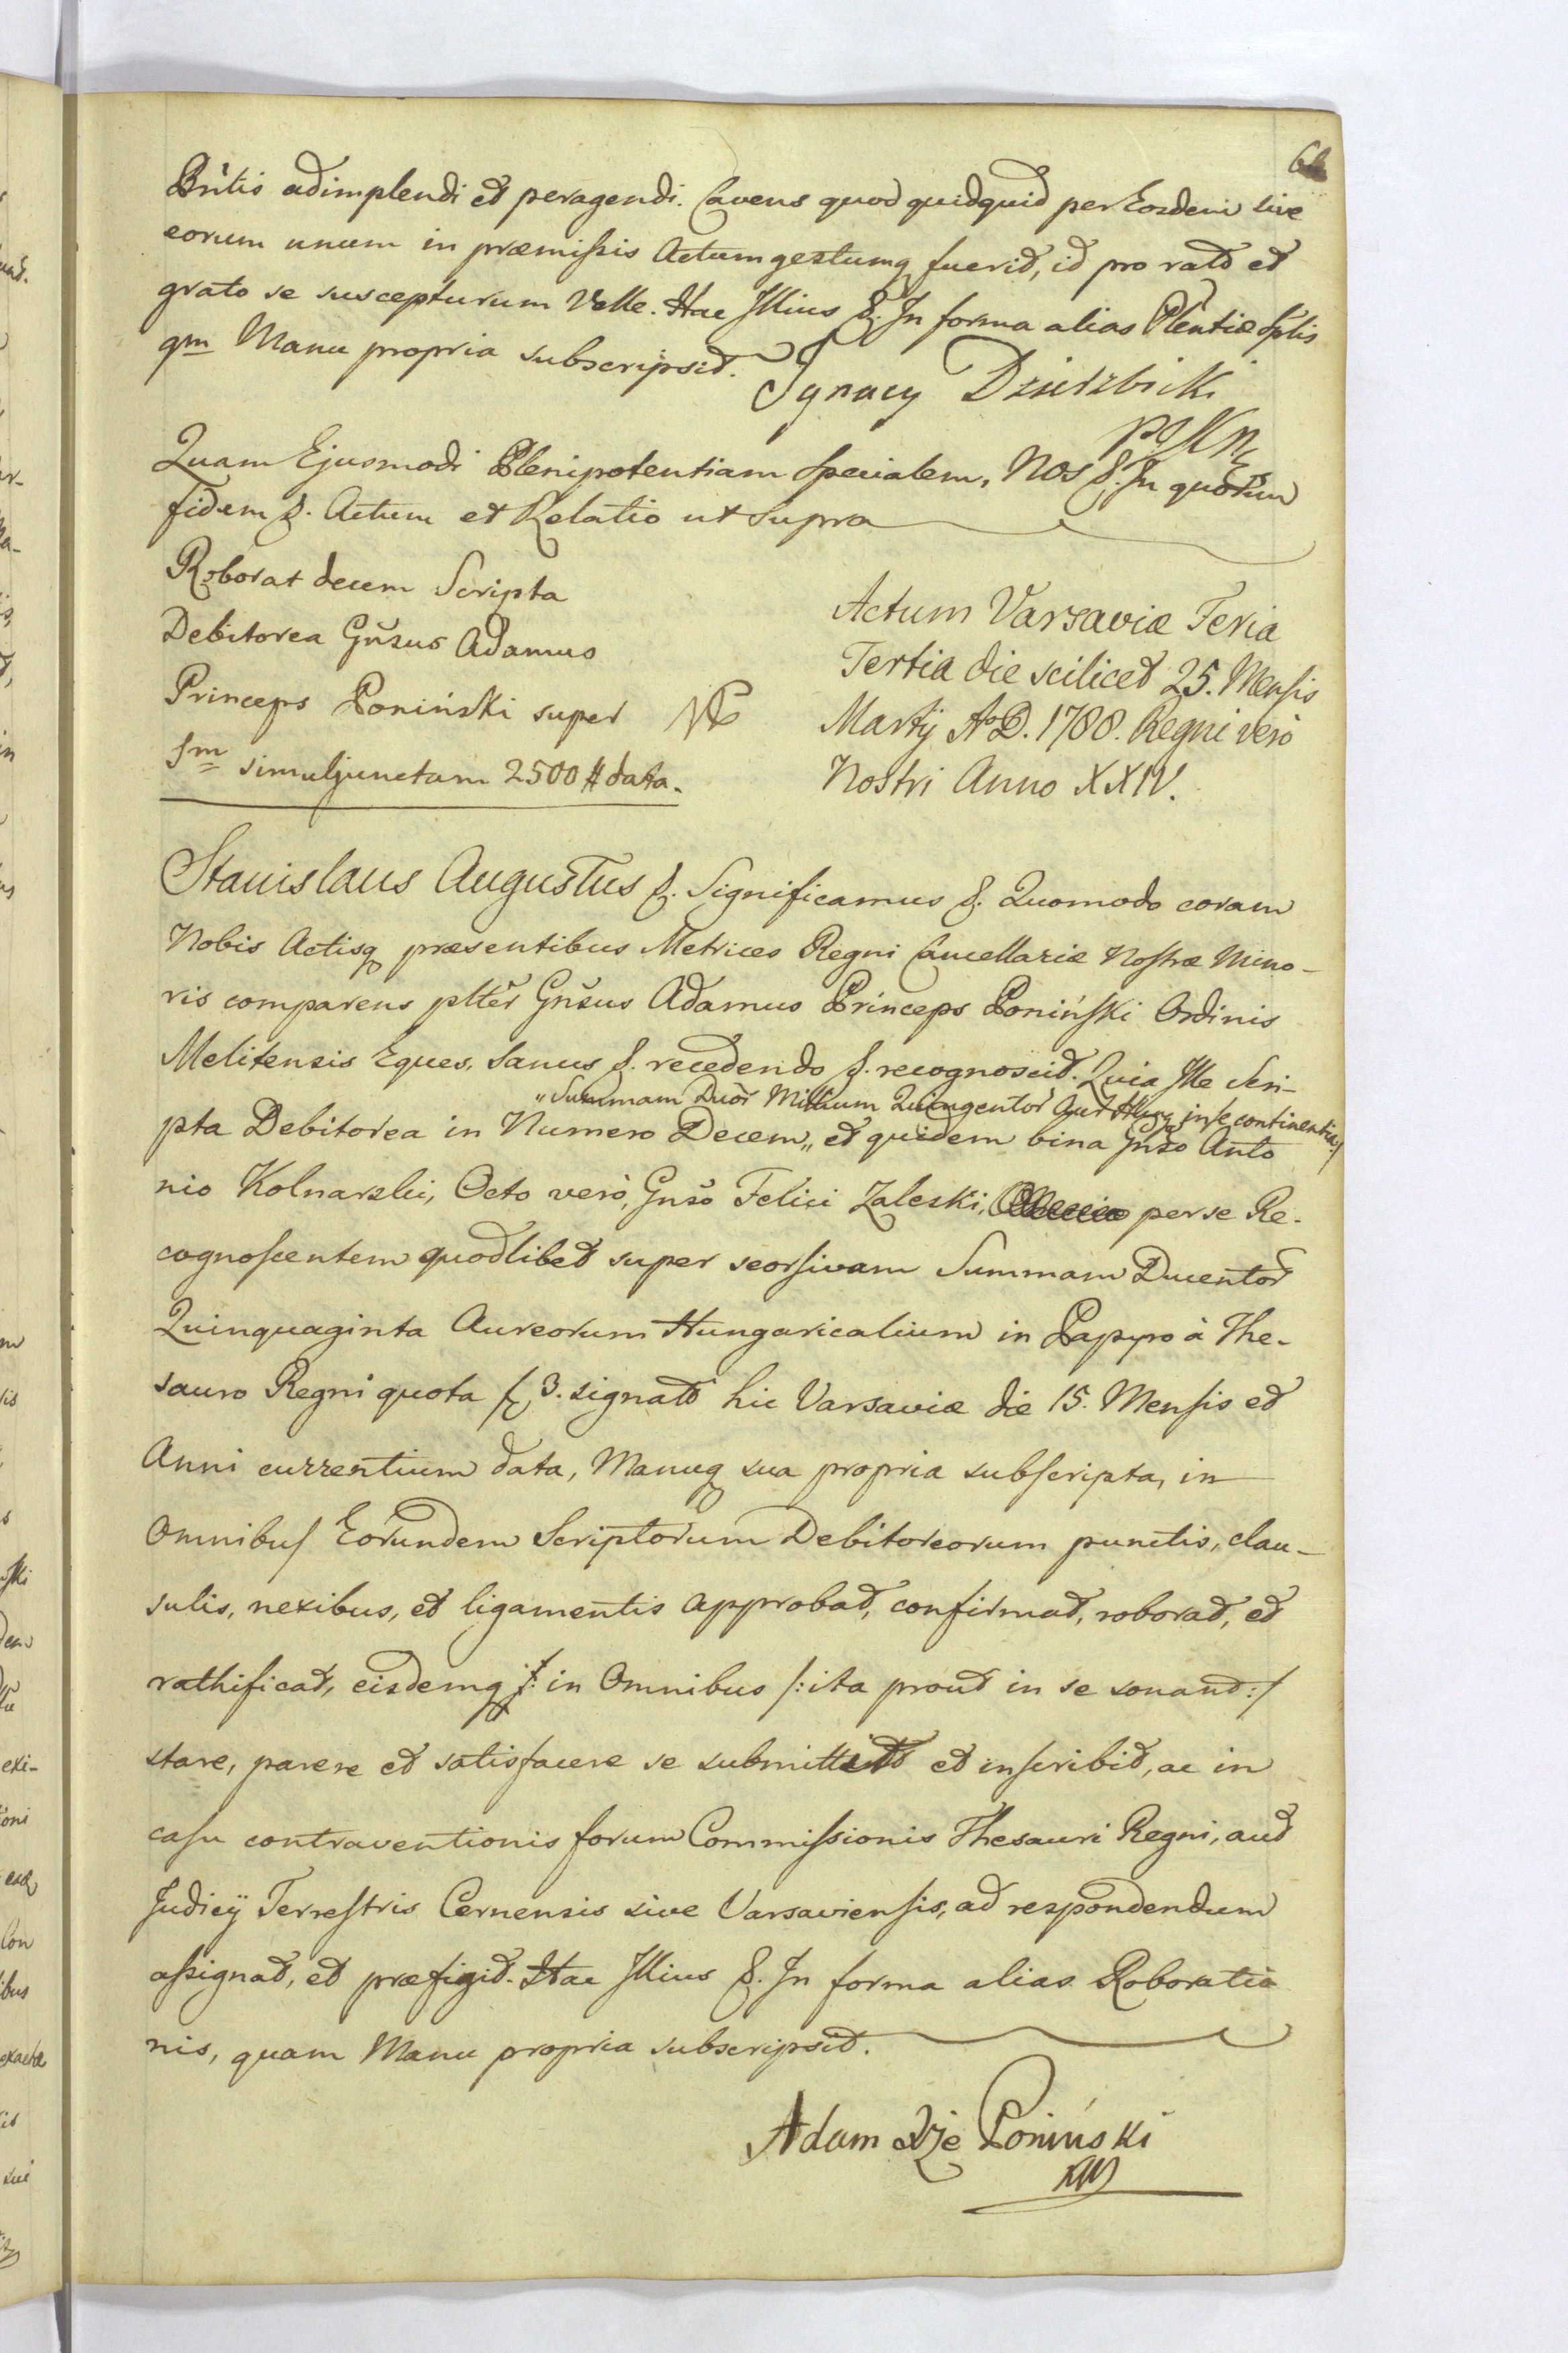 Bntis adimplendi et peragendi. Cavens quod quidquid per Eosdem sive
eorum unum in præmissis Actum gestumq fuerit, id pro rato et
grato se suscepturum Velle. Hac Illius &. In forma alias Plentiæ Splis
qm Manu propria subscripsit.
Ignacy Dzierzbicki
Quam Ejusmodi Plenipotentiam Specialem, Nos &. In quorum
fidem &. Actum et Relatio ut supra
Roborat decem Scripta
Debitorea Gnsus Adamus
Princeps Poniński super
Sm simuljunctam 2500 # data.
Actum Varsaviæ Feria
Tertia die scilicet 25. Mensis
Martij Ao D. 1788. Regni vero
Nostri Anno XXIV.
Stanislaus Augustus &. Significamus &. Quomodo coram
Nobis Actisq præsentibus Metrices Regni Cancellariæ Nostræ Mino-
ris comparens pltter Gnsus Adamus Princeps Poniński Ordinis
Melitensis Eques, Sanus &. recedendo &. recognoscit. Quia Ille Scri-
„Summam Duor Millium Quingentor Aur Hung in se continentia/
pta Debitorea in Numero Decem„ et quidem bina Gnso Anto
nio Kolnarski, Octo verò, Gnso Felici Zaleski, per se Re-
cognoscentem quodlibet super seorsivam Summam Ducentor
Quinquaginta Aureorum Hungaricalium in Papyro à The-
sauro Regni quota f 3. signato hic Varsaviæ die 15. Mensis et
Anni currentium data, Manuq sua propria subscripta, in
Omnibus Eorundem Scriptorum Debitoreorum punctis, clau-
sulis, nexibus, et ligamentis approbat, confirmat, roborat, et
rathificat, eisdemq in Omnibus /: ita prout in se sonant :/
stare, parere et satisfacere se submittit et inscribit, ac in
casu contraventionis forum Commissionis Thesauri Regni, aut
Judicij Terrestris Cernensis sive Varsaviensis, ad respondendum
assignat, et præfigit. Hac Illius &. In forma alias Roboratio
nis, quam Manu propria subscripsit.
Adam Xże Poniński